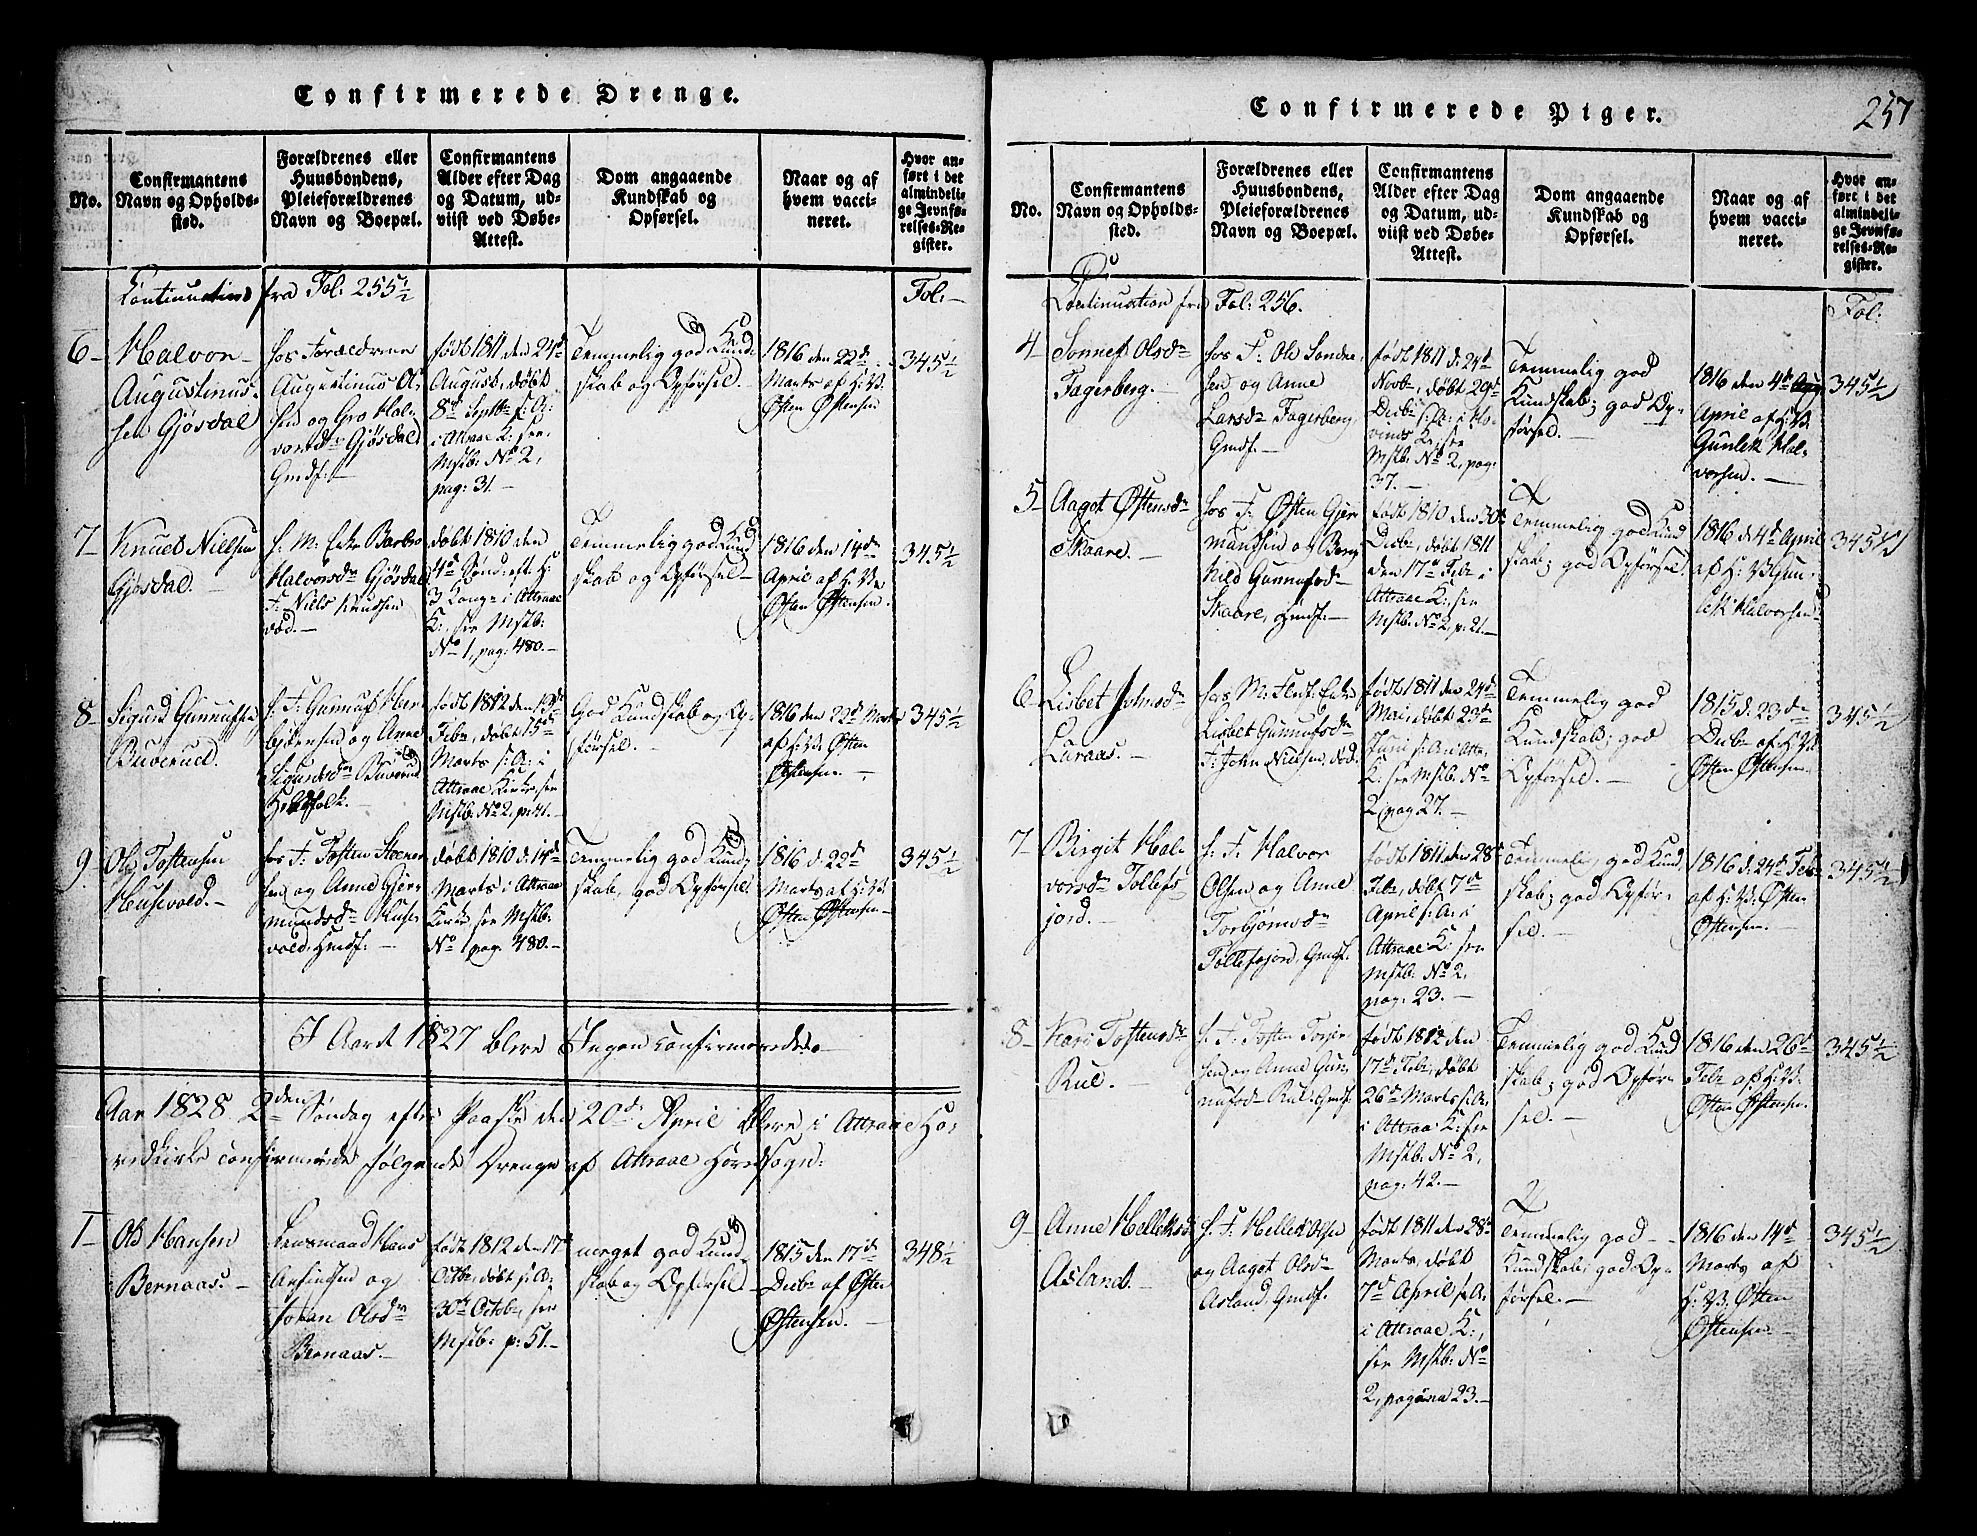 Confirmerede Drenge.
No.
Confirmantens
Navn og Opholds-
sted.
Forældrenes eller
Huusbondens,
Pleieforældrenes
Navn og Boepæl.
Confirmantens
Alder efter Dag
og Datum, ud-
viist ved Døbe-
Attest.
Dom angaaende
Kundskab og
Opførsel.
Naar og af
hvem vacci-
neret.
Hvor an-
ført i det
almindeli-
ge Jevnfø-
relses-Re-
gister.
Continuation fra Fol: 255½
Fol:
6
Halvor
Augustinus-
sen Gjøsdal
hos Forældrene
Augustinus Ol-
sen og Gro Hal-
vorsdr Gjøsdal
Gmdf:
født 1811 den 24d
August, døbt
8de Septbr s: A:
i Attraae K: see
Mstb: No 2,
pag: 31.
Temmelig god Kund-
skab og Opførsel.
1816 den 22d
Marts af H: V:
Østen Østensen
345½
7
Knuet Nielsen
Gjøsdal.
h. M: Enke Barbro
Halvorsdr Gjøsdal
F: Niels Knudsen
død.
døbt 1810 den
4de Sønd: eft: H:
3 Kong: i Attraae
K:, see Mstb:
No 1, pag: 480.
Temmelig god Kund
skab og Opførsel
1816 den 14de
April af H: V:
Østen Østensen.
345½
8
Sigurd Gunnufsen
Buverued.
h: F: Gunnuf Her-
bjørnsen og Anne
Sigurdsdr Buverud
født 1812 den 13de
Febr, døbt 15de
Marts s: A: i
Attraae Kirke, see
Mstb: No 2, p: 41.
God Kundskab og Op-
førsel.
1816 den 22d Marts
af H: V: Østen
Østensen.
345½
9
Ole Tostensen
Husevold.
hos F: Tosten Steener-
sen og Anne Gjer-
mundsdr Huse-
vold, Gmdf:
døbt 1810 d. 14de
Marts i Attraae
Kirke see Mstb:
No 1 pag: 480.
Temmelig god Kund-
skab, god Opførsel
1816 d. 22de
Marts af H: V:
Østen Østensen
345½
I Aaret 1827 bleve Ingen confirmerede.
Aar 1828 2den Søndag efter Paaske den 20de April bleve i Attraae Ho-
vedkirke confirmerede følgende Drenge af Attraae Hovedsogn:
1
Ole Hansen
Bernaas.
Lensmand Hans
og
Olsdr
Bernaas.
født 1812 den 17de
Octbr, døbt s: A:
30te Octbr, see
Mstb: p: 51.
meget god Kund-
skab og Opførsel
1815 den 17de
Decbr af Østen
Østensen.
348½
Confirmerede Piger.
257
No.
Confirmantens
Navn og Opholds-
sted.
Forældrenes eller
Huusbondens,
Pleieforældrenes
Navn og Boepæl.
Confirmantens
Alder efter Dag
og Datum, ud-
viist ved Døbe-
Attest.
Dom angaaende
Kundskab og
Opførsel.
Naar og af
hvem vacci-
neret.
Hvor an-
ført i det
almindeli-
ge Jevnfø-
relses-Re-
gister.
Continuation fra Fol: 256.
Fol:
4
Sonnef Olsdr
Fagerberg.
hos F: Ole Sondre-
sen og Anne
Larsdr Fagerberg
Gmdf.
født 1811 d: 24d
Novbr, døbt 29de
Decbr s: A: i Ho-
vinds K: see
Mstb: No 2, pag:
37.
Temmelig god
Kundskab; god Op-
førsel.
1816 den 4de
April af H: V:
Gunlek Hal-
vorsen.
345½
5
Aagot Østensdr
Skaare.
hos F: Østen Gjer-
mundsen og Berg-
hild Gunnufsdr
Skaare, Gmdf.
født 1810 den 30te
Decbr, døbt 1811
den 17de Febr i
Attraae K: see
Mstb: No 2, p. 21.
Temmelig god Kund
skab; god Opførsel.
1816 d: 4de April
af H: V: Gun-
lek Halvorsen
345½
6
Lisbet Johnsdr
Laraas.
hos M: Enke
Lisbet Gunnufsdr
F: John Nielsen, død.
født 1811 den 24de
Mai, døbt 23de
Juni s: A: i Attr:
K: see Mstb: No
2, pag 27.
Temmelig god
Kundskab; god
Opførsel.
1815 d. 23de
Decbr af H: V:
Østen Østensen
345½
7
Birgit Hal-
vorsdr Tollefs-
jord.
h. F. Halvor
Olsen og Anne
Torbjørnsdr
Tollefsjord, Gmdf.
født 1811 den 28de
Febr, døbt 7de
April s: A: i
Attraae K: see
Mstb: No 2,
pag: 23.
Temmelig god Kund
skab; god Opfør-
sel.
1816 d: 24de Febr
af H: V: Østen
Østensen.
345½
8
Kari Tostensdr
Rue.
h. F. Tosten
sen og Anne Gun-
nufsdr Rue. Gmdf.
født 1812 den
17de Febr, døbt
26de Marts s: A:
i Attraae K: see
Mstb: No 2,
pag: 42.
Temmelig god Kund
skab; god Opfør-
sel.
1816 den 26de
Febr af H: V:
Østen Østensen.
345½
9
Anne Helleksdr
Asland.
h. F. Hellek Olsen
og Aagot Olsdr
Asland, Gmdf.
født 1811 den 28de
Marts, døbt
7de April s: A:
i Attraae K:,
see Mstb: No
2, pagina 23.
Temmelig god
Kundskab; god Op-
førsel.
1816 den 14de
Marts af
H: V: Østen
Østensen.
345½